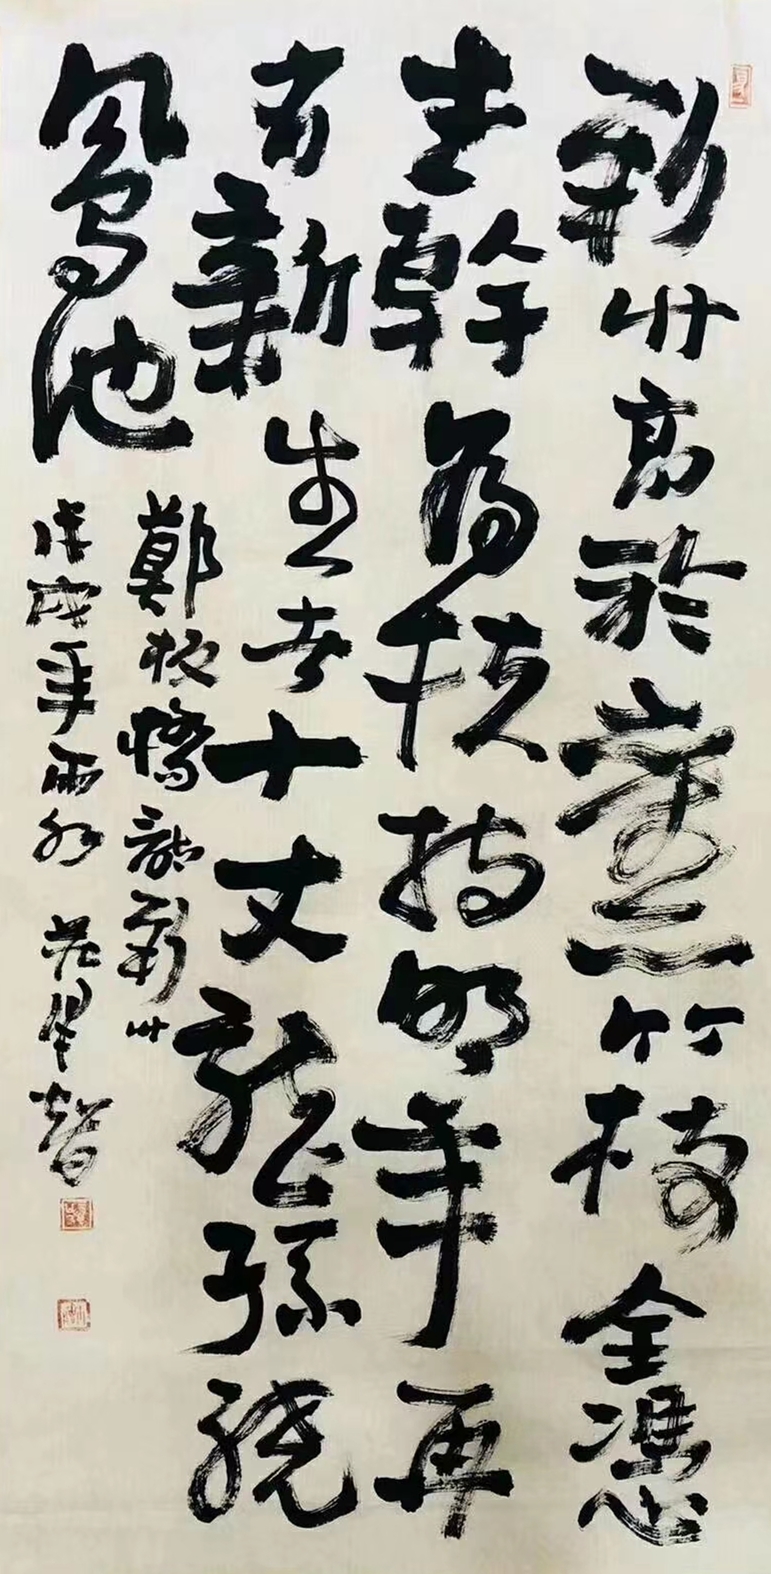 新竹高於舊竹枝全憑
老幹為扶持明年再
有新生者十丈龍孫繞
鳳池
鄭板橋新竹
戊戌年雨水